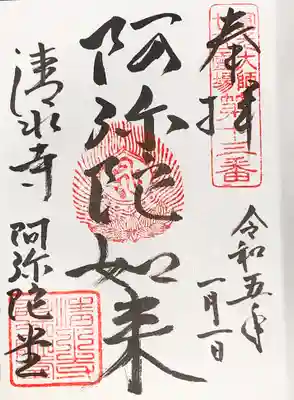 奉拝
大師
第十三番
令和五年
一月一日
阿弥陀如来
清水寺
阿弥陀堂